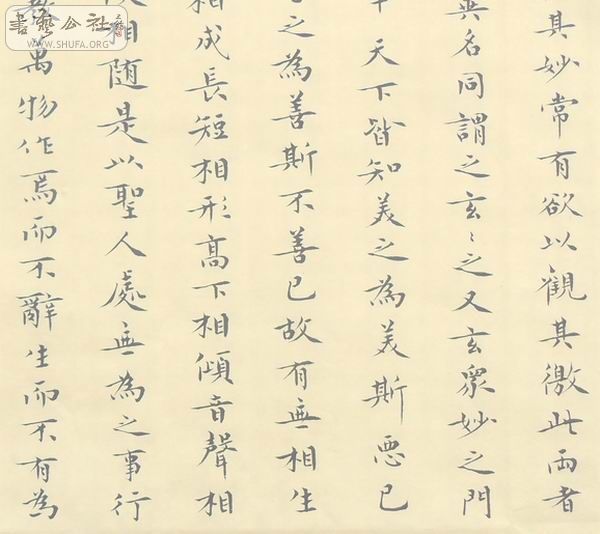 其妙常有欲以觀其徼此両者
無名同謂之玄〻之又玄衆妙之門
天下皆知美之為美斯惡已
之為善斯不善已故有無相生
相成長短相形高下相傾音聲相
相随是以聖人處無為之事行
萬物作焉而不辭生而不有為
書藝公社
WWW.SHUFA.ORG